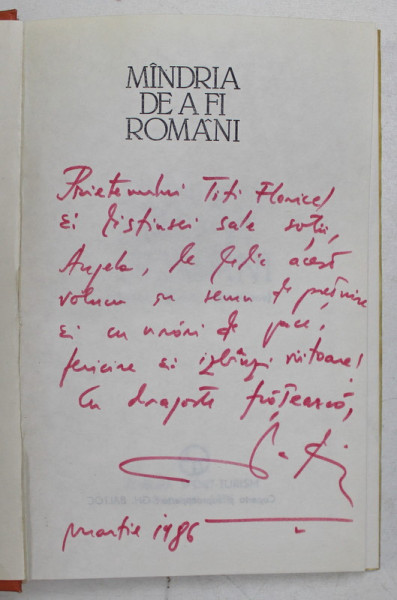 MÎNDRIA
DE A FI
ROMÂNI
Prietenului Titi Floricel
și distinsei sale soții,
Angela, le dedic acest
volum în semn de prețuire
și cu urări de pace,
fericire și izbînzi viitoare!
Cu dragoste frățească,
martie 1986